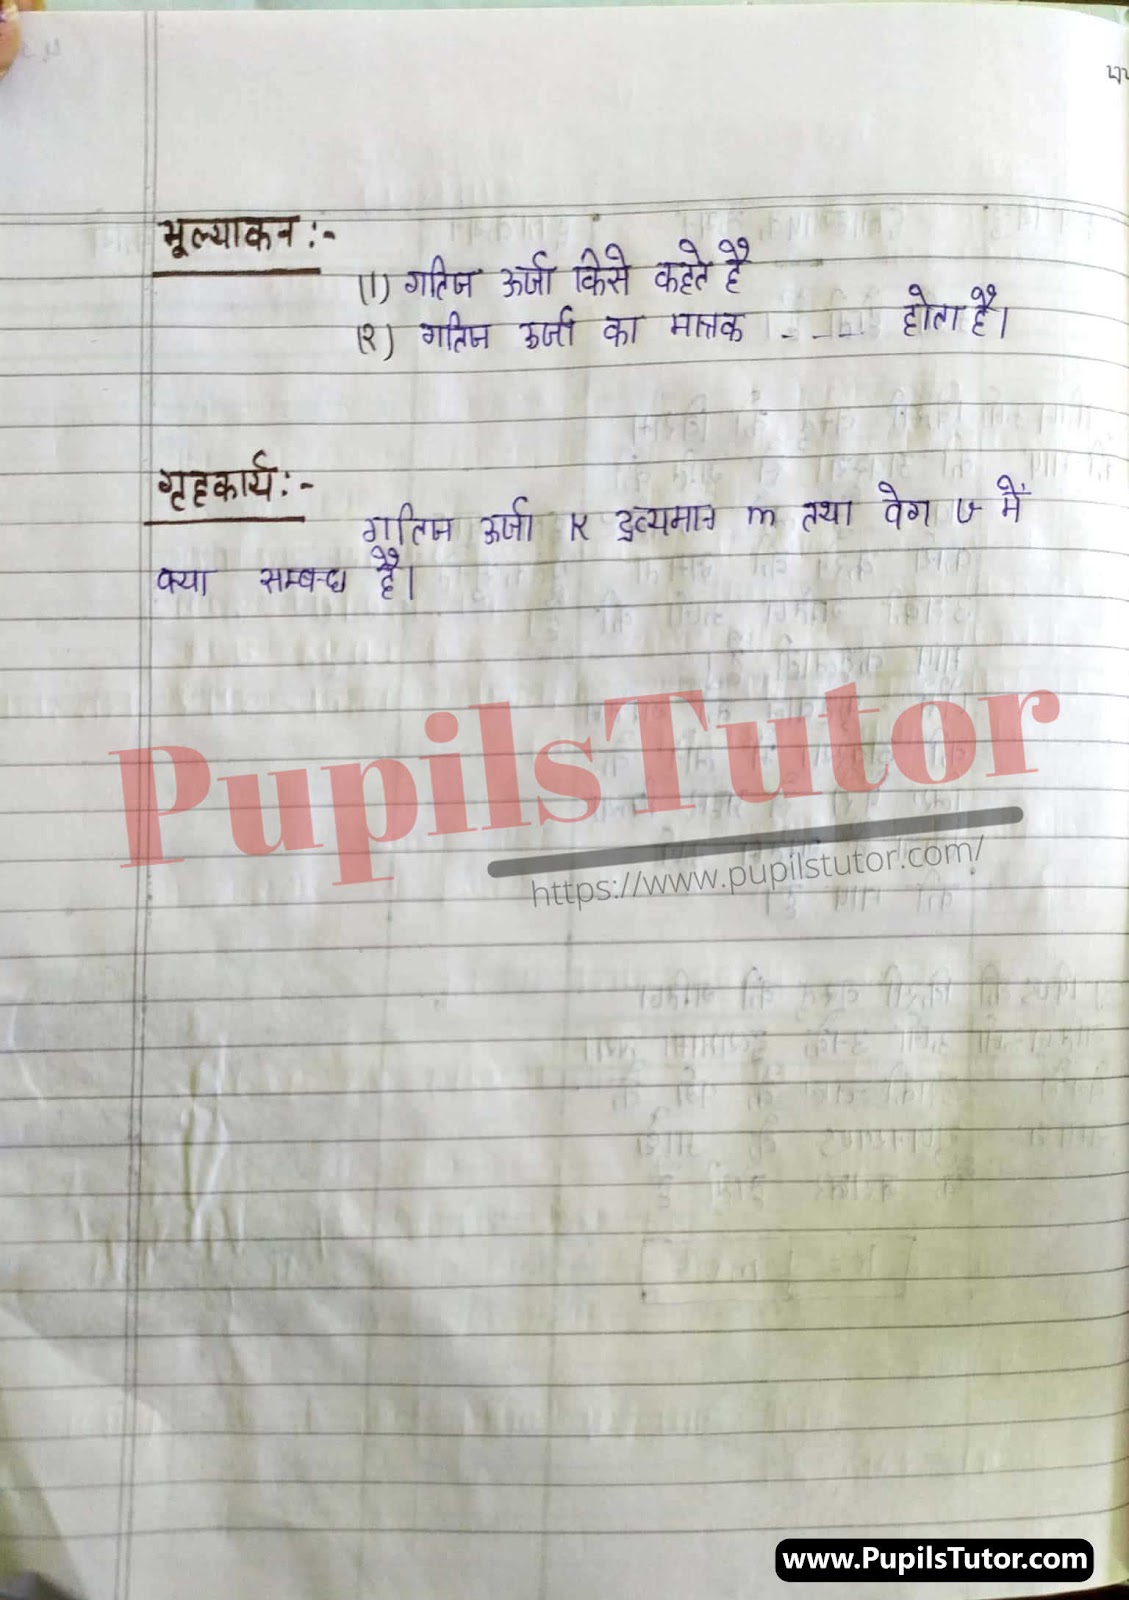 मूल्याकन :-
(1) गतिज ऊर्जा किसे कहते है
(२) गतिज ऊर्जा का मात्रक - - - - होता है।
गृहकार्य :-
गतिज ऊर्जा K द्रव्यमान m तथा वेग v में
क्या सम्बन्ध है।
PupilsTutor
https://www.pupilstutor.com/
www.PupilsTutor.com